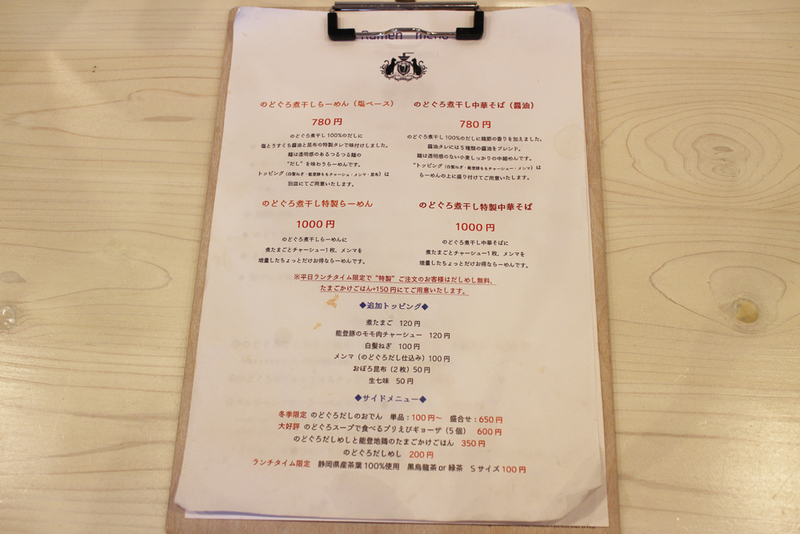 Ramen menu
のどぐろ煮干しらーめん（塩ベース）
780円
のどぐろ煮干し100%のだしに
塩とうすくち醤油と昆布の特製タレで味付けしました。
麺は透明感のあるつるつる麺の
"だし"を味わうらーめんです。
トッピング（白髪ねぎ・能登豚ももチャーシュー・メンマ・昆布）は
別皿にてご用意いたします。
のどぐろ煮干し中華そば（醤油）
780円
のどぐろ煮干し100%のだしに鶏節の香りを加えました。
醤油タレには5種類の醤油をブレンド。
麺は透明感のない小麦しっかりの中細めんです。
"トッピング（白髪ねぎ・能登豚ももチャーシュー・メンマ）は
らーめんの上に盛り付けてご用意いたします。
のどぐろ煮干し特製らーめん
1000円
のどぐろ煮干しらーめんに
煮たまごとチャーシュー1枚、メンマを
増量したちょっとだけお得ならーめんです。
のどぐろ煮干し特製中華そば
1000円
のどぐろ煮干し中華そばに
煮たまごとチャーシュー1枚、メンマを
増量したちょっとだけお得ならーめんです。
※平日ランチタイム限定で"特製"ご注文のお客様はだしめし無料、
たまごかけごはん+150円にてご用意いたします。
◆追加トッピング◆
煮たまご 120円
能登豚のモモ肉チャーシュー 120円
白髪ねぎ 100円
メンマ（のどぐろだし仕込み）100円
おぼろ昆布（2枚）50円
生七味 50円
◆サイドメニュー◆
冬季限定 のどぐろだしのおでん 単品：100円〜 盛合せ：650円
大好評 のどぐろスープで食べるプリえびギョーザ（5個） 600円
のどぐろだしめしと能登地鶏のたまごかけごはん 350円
のどぐろだしめし 200円
ランチタイム限定 静岡県産茶葉100%使用 黒烏龍茶 or 緑茶 Sサイズ100円